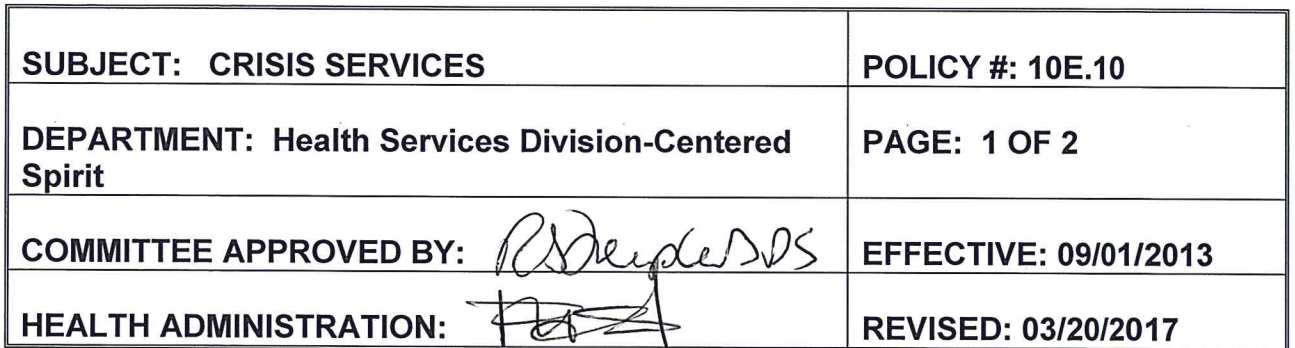 SUBJECT: CRISIS SERVICES
POLICY #: 10E.10
DEPARTMENT: Health Services Division-Centered
Spirit
PAGE: 1 OF 2
COMMITTEE APPROVED BY:
EFFECTIVE: 09/01/2013
HEALTH ADMINISTRATION:
REVISED: 03/20/2017